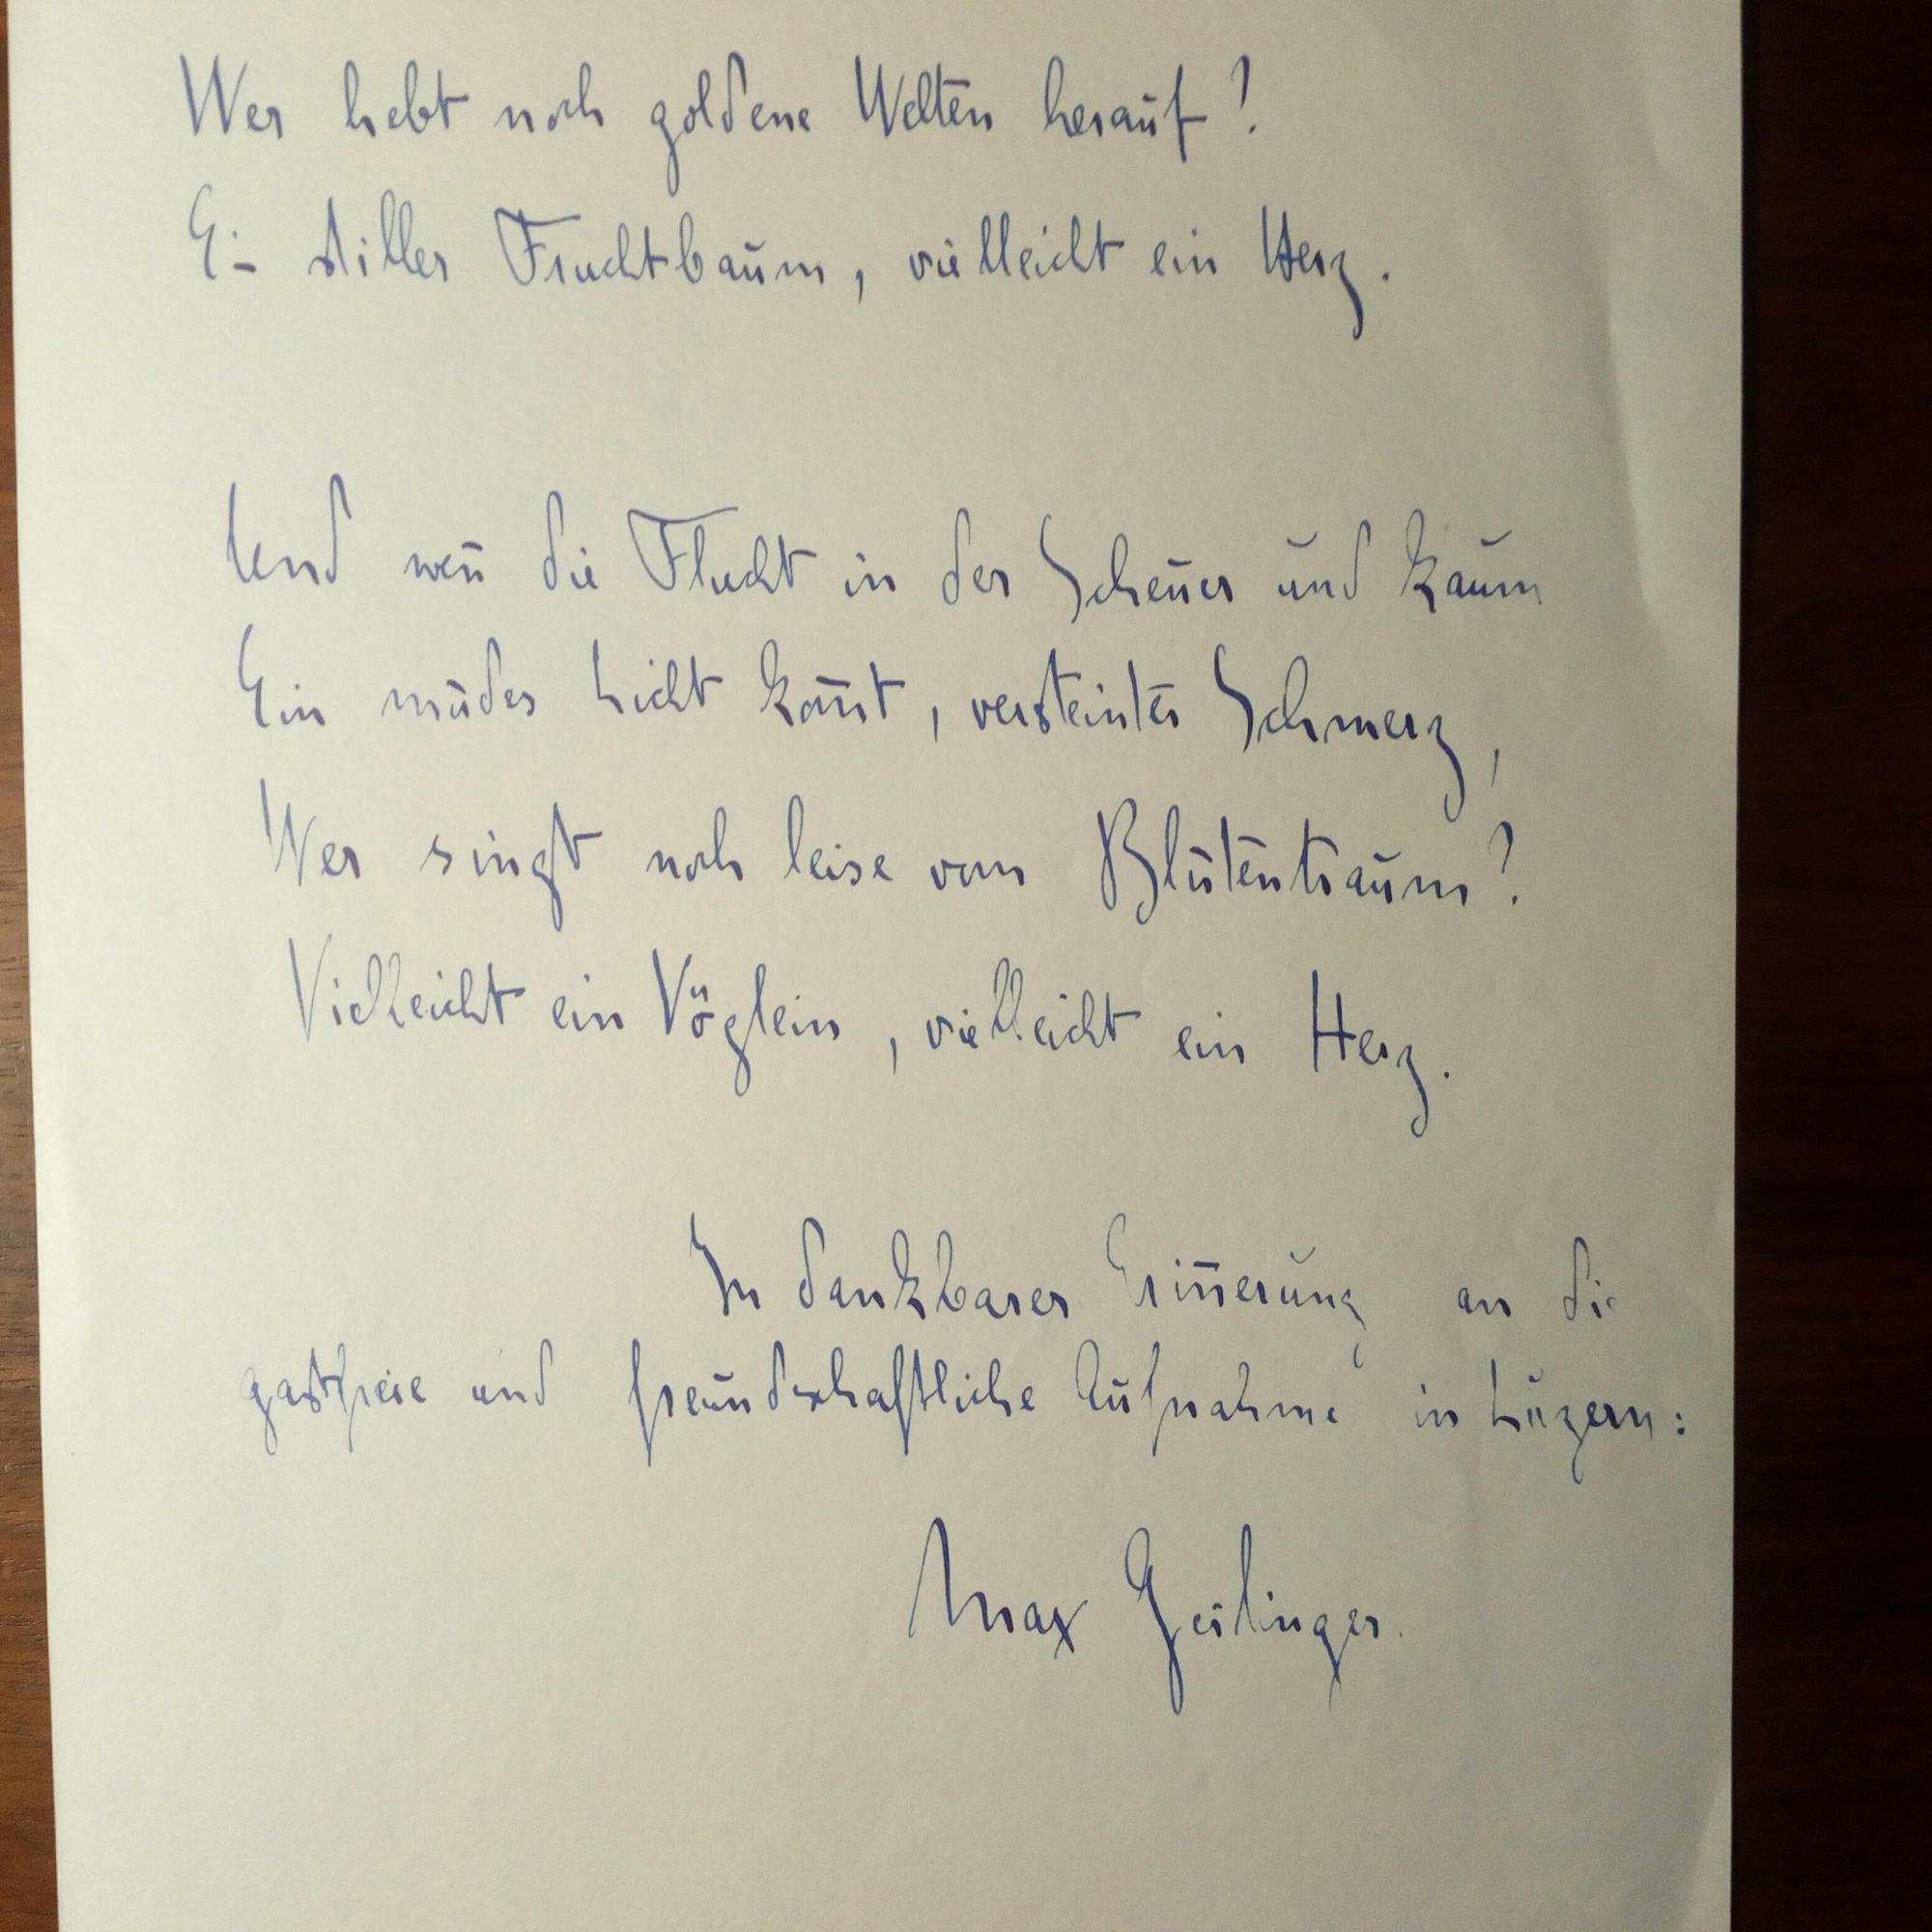 Wer hebt noch goldene Welten herauf?
Ein stiller Fruchtbaum, vielleicht ein Herz.
Und weñ die Flucht in der Scheuer und kaum
Ein müdes Licht kom̄t, versteinter Schmerz,
Wer singt noch leise vom Blütentraum?
Vielleicht ein Vöglein, vielleicht ein Herz.
In dankbarer Eriñerung an die
gastfreie und freundschaftliche Aufnahme in Luzern:
Max Geilinger.